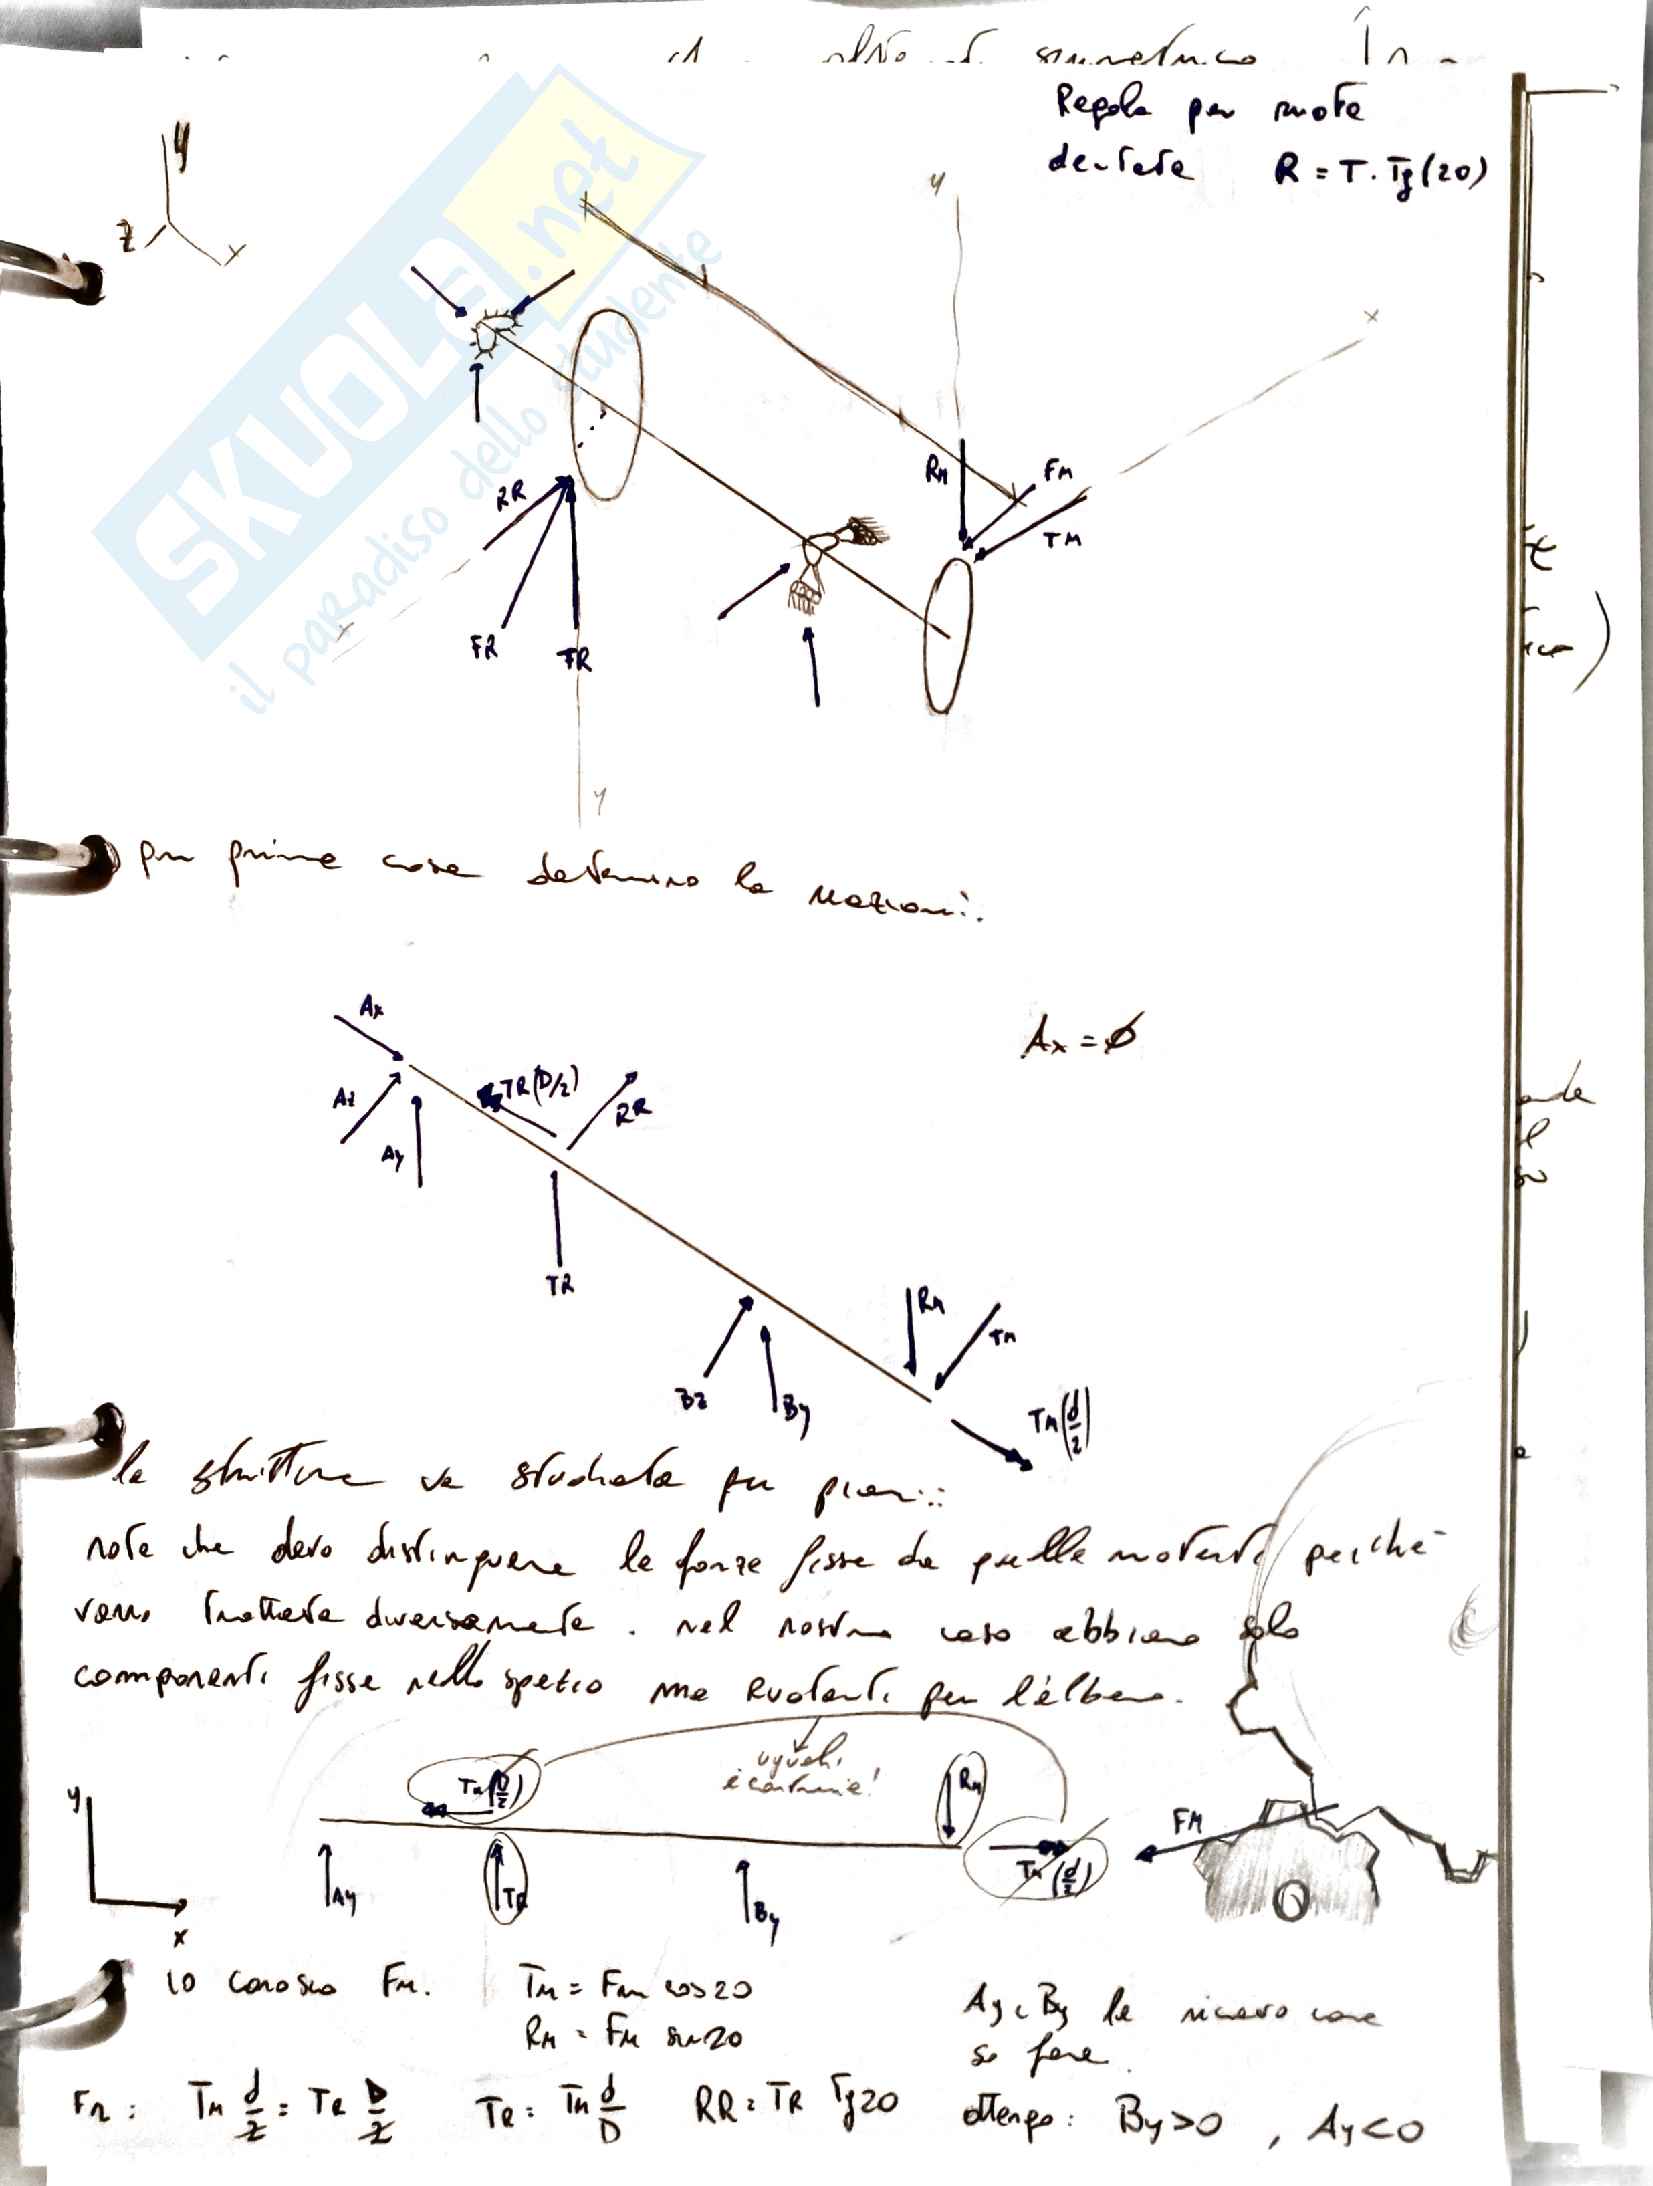 simmetrico
Regola per ruote
dentate R = T . Tg (20)
y
z
x
y
x
SKUOLA.net
il paradiso dello studente
RM
FM
TM
RR
FR
TR
x
y
per prima cosa determino le reazioni:
Ax
Ax = ∅
Az
Ay
TR(D/2)
RR
TR
RM
TM
Bz
By
TM(d/2)
la struttura va studiata per piani:
nota che devo distinguere le forze fisse da quelle rotanti perché
vanno trattate diversamente. nel nostro caso abbiamo solo
componenti fisse nello spazio ma ruotanti per l'albero.
uguali
e contrarie!
RM
y
x
Ay
TR
By
TM(d/2)
FM
io conosco FM. TM = FM cos20
RM = FM sen20
Ay e By le ricavo come
so fare.
FR: TM d/2 = TR D/2 TR = TM d/D RR = TR Tg20
ottengo: By>0, Ay<0